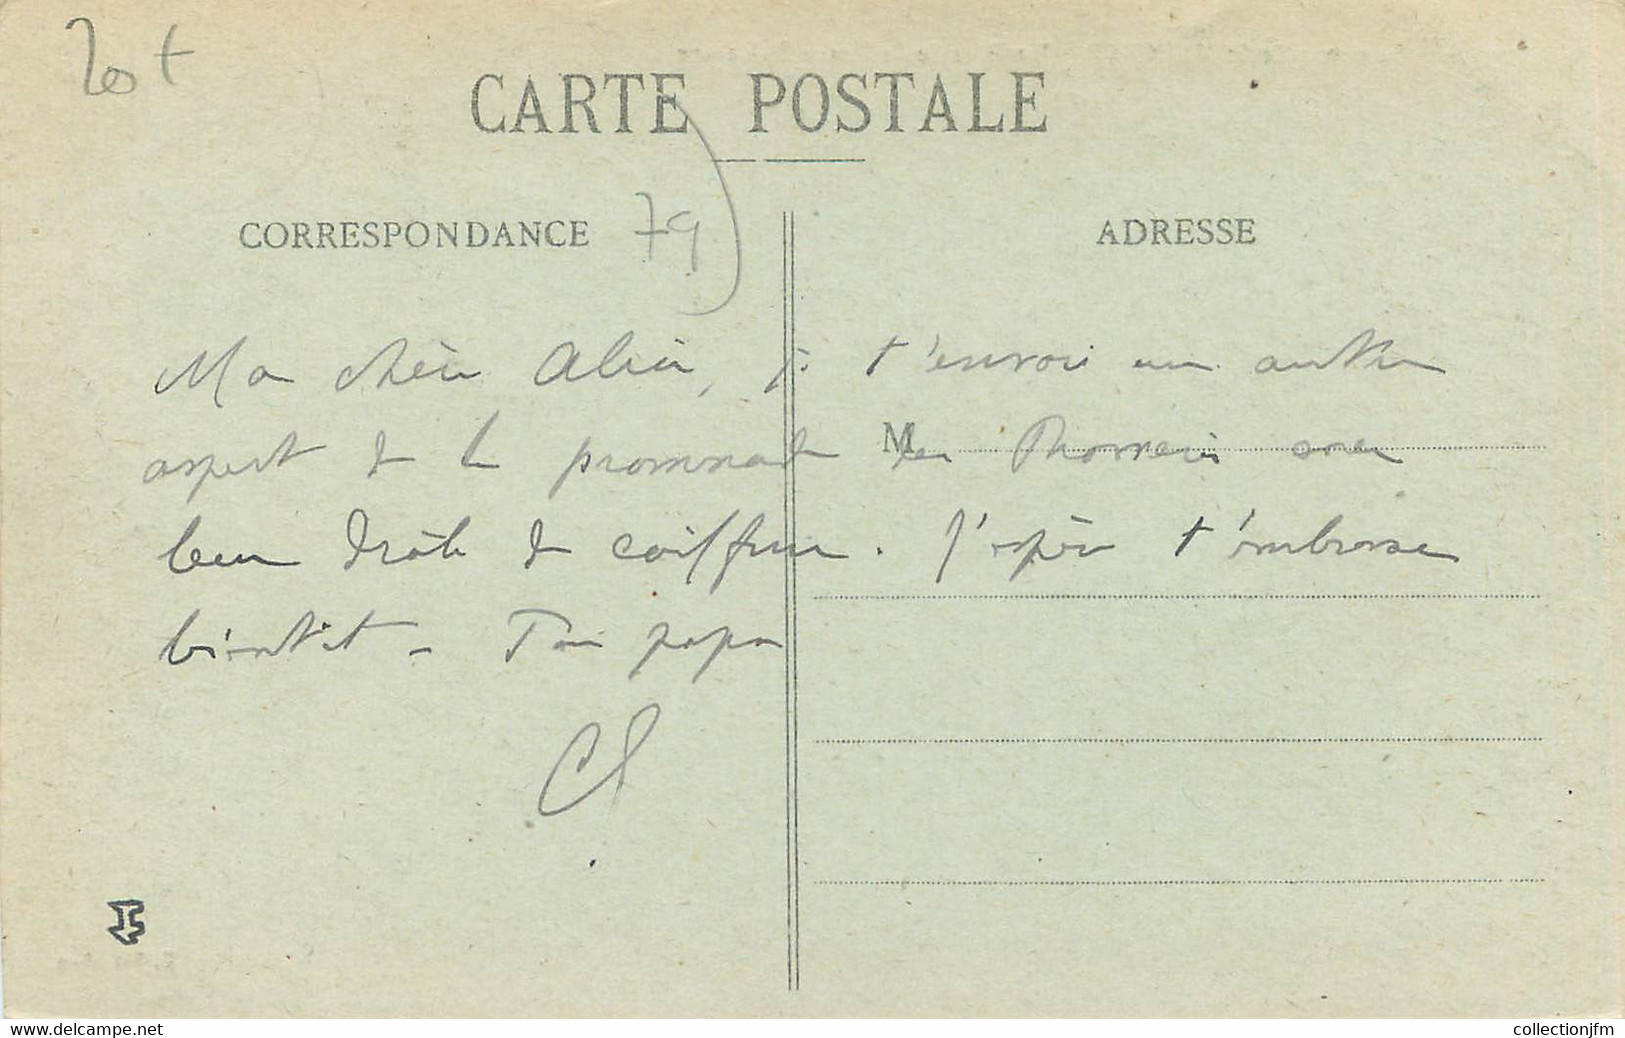 CARTE POSTALE
CORRESPONDANCE 79
ADRESSE
Ma chère Alice, je t'envoie un autre
aspect de la promenade des Thouarsais avec
M
leur drôle de coiffure. J'espère t'embrasser
bientôt - Ton papa
www.delcampe.net
collectionjfm